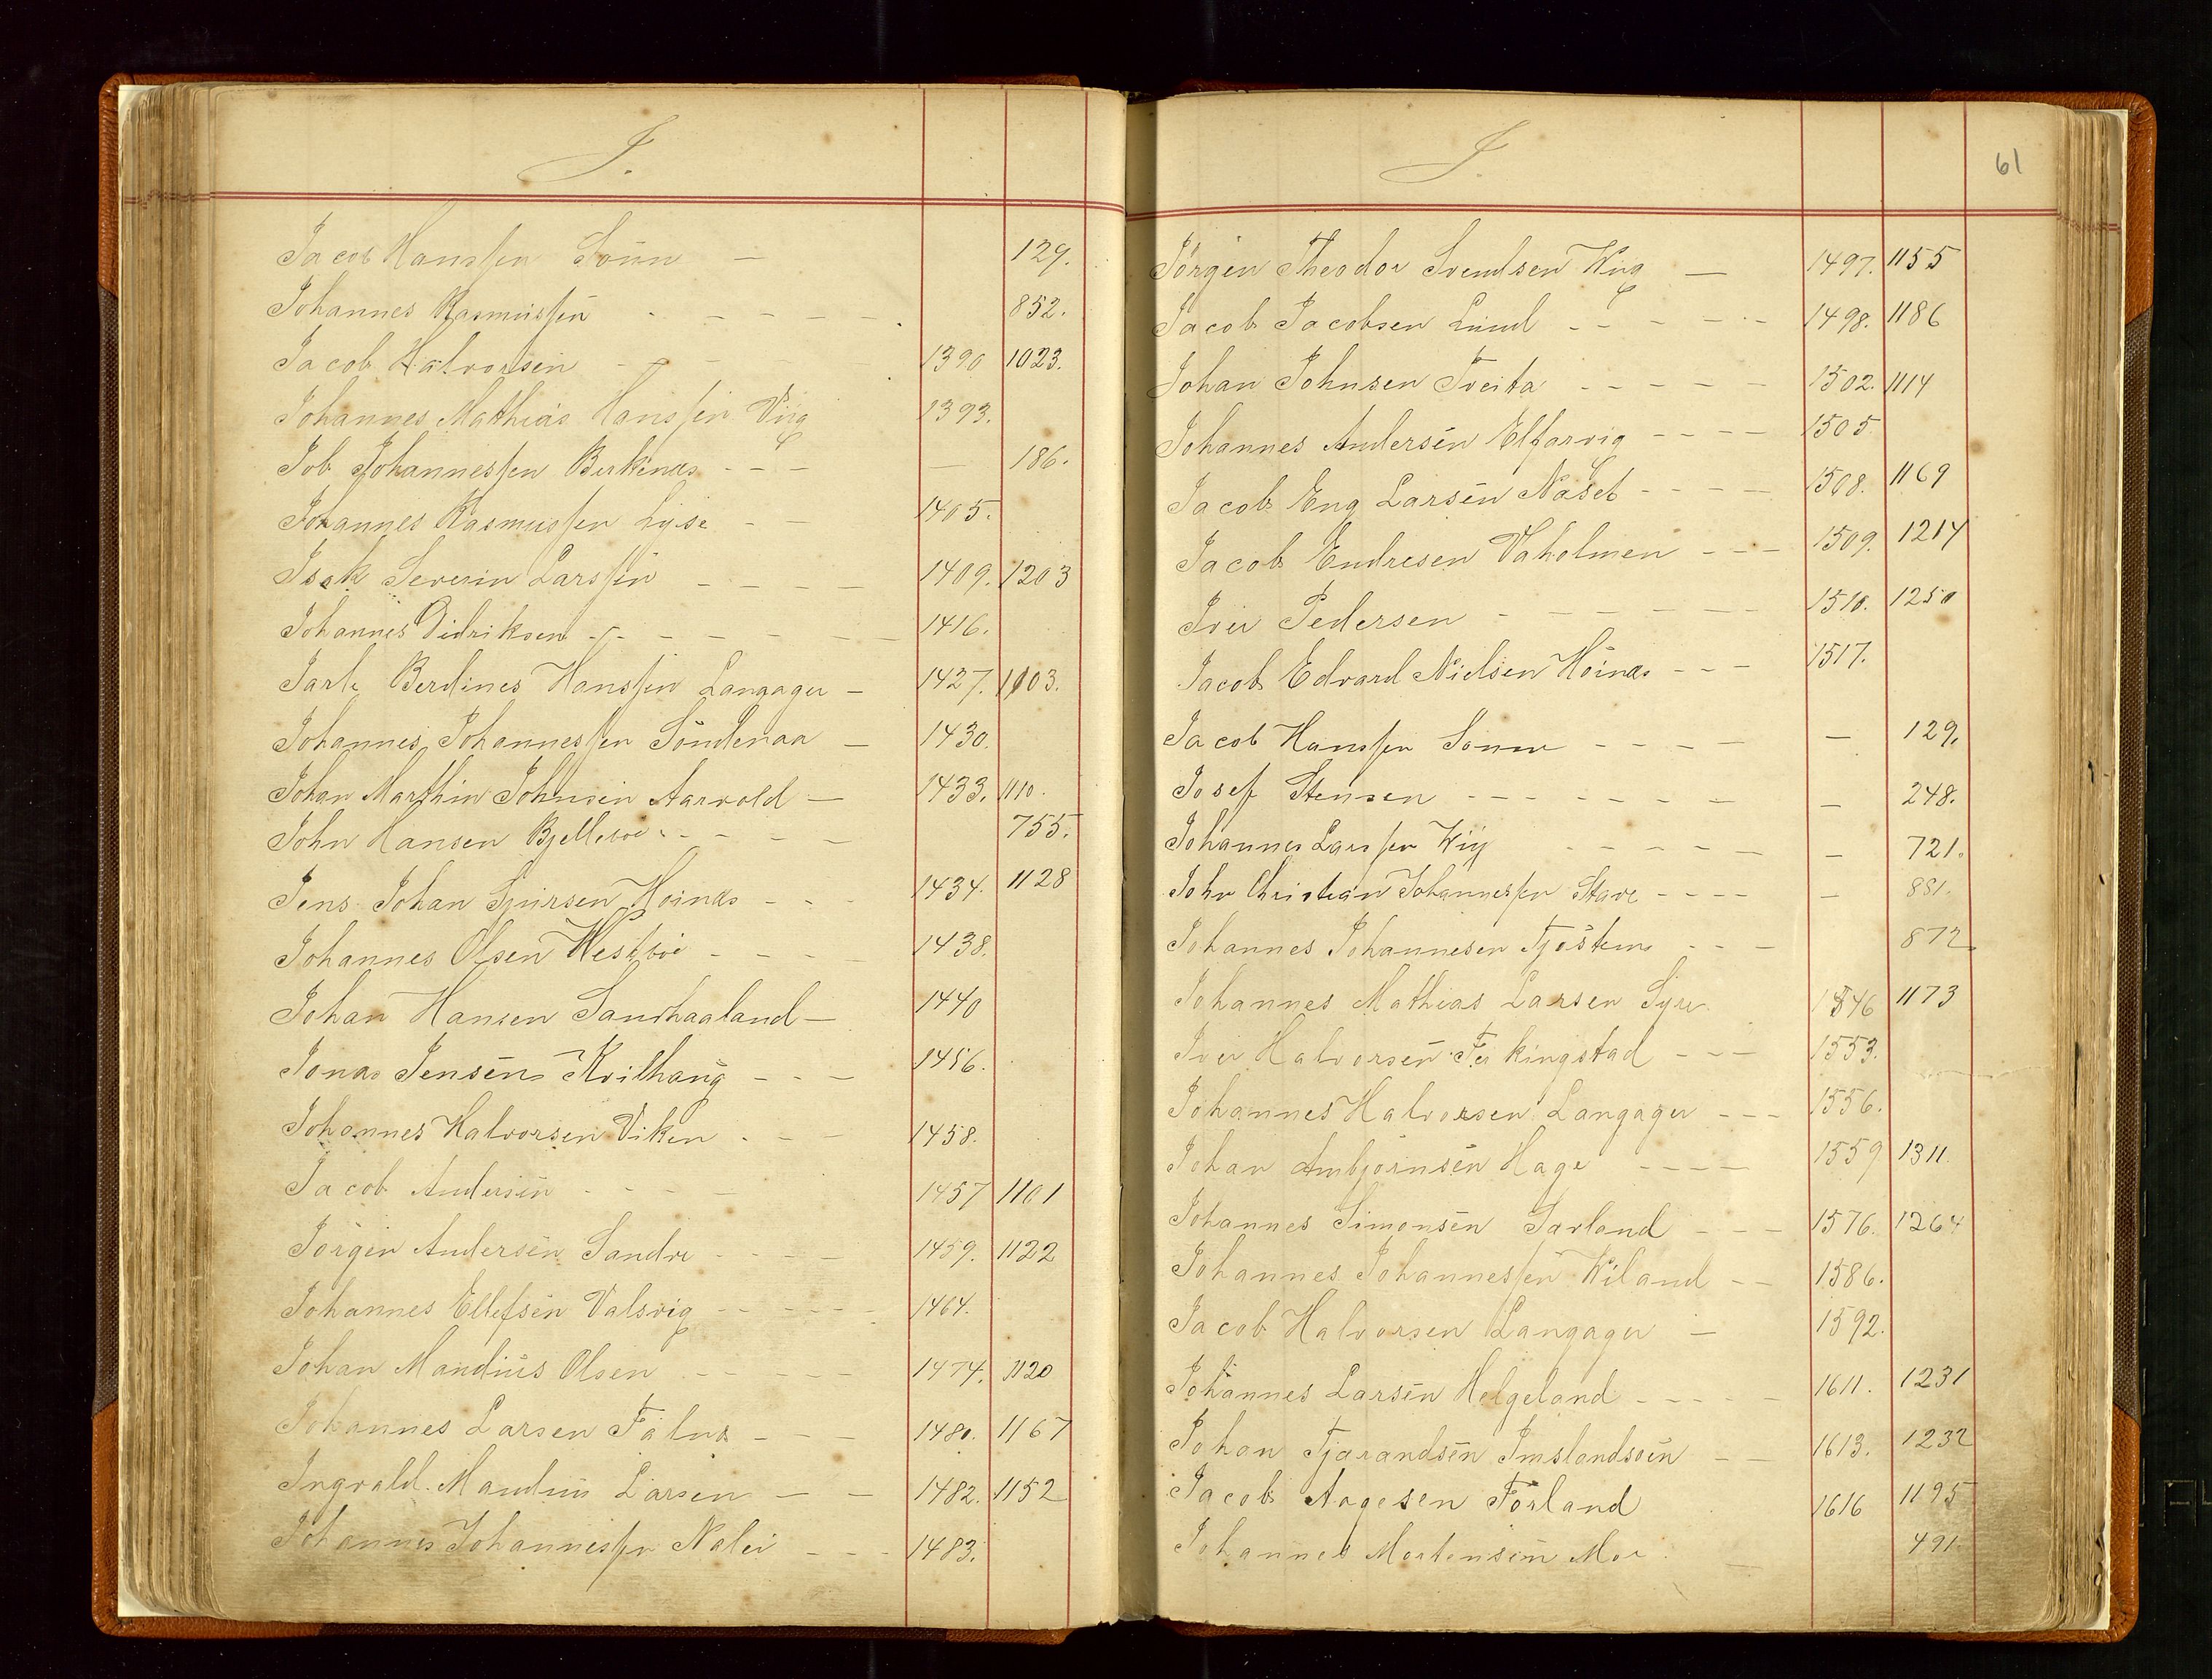 J.
Jacob Hanssen Sönn — 129.
Johannes Rasmussen - - - - - 852.
Jacob Halvorsen - - - 1390 1023.
Johannes Mathias Hanssen Viig 1393.
Job Johannessen Birkenæs - - - — 186.
Johannes Rasmussen Lyse - - 1405.
Isak Severin Larssen - - - - 1409. 1203
Johannes Didriksen - - - - - - 1416.
Jarle Berdines Hanssen Langager - 1427. 1103.
Johannes Johannessen Söndenaa — 1430.
Johan Marthin Johnsen Aarvold — 1433. 1110.
John Hansen - - - - 755.
Jens Johan Hoinæs - - - 1434. 1128
Johannes Olsen Westbö - - - - 1438.
Johan Hansen Sandhaaland — 1440
Jonas Jensen Kvilhaug - - - 1456.
Johannes Halvorsen Viken - - - 1458.
Jacob Andersen - - - - 1457 1101
Jörgen Andersen Sandve - - - - 1459. 1122
Johannes Ellefsen Valsvig - - - - - 1464.
Johan Mandius Olsen - - - - - 1474. 1120
Johannes Larsen Falnæs - - - 1480. 1167
Ingvald Mandius Larsen — — 1482. 1152
Johannes Johannessen Nalei - - - 1483.
J.
61
Jörgen Theodor Svendsen Wiig — 1497. 1155
Jacob Jacobsen Lund - - - - - 1498. 1186
Johan Johnsen Tveita - - - - - 1502. 1114
Johannes Andersen Elfarvig - - - - 1505
Jacob Eng Larsen Næset - - - - 1508. 1169
Jacob Endresen Vaholmen - - - 1509. 1214
Iver Pedersen - - - - - - 1510. 1250
Jacob Edvard Nielsen Höinæs - - - 1517.
Jacob Hanssen Sönn - - - - — 129.
Josef Stensen - - - - - - - — 248.
Johannes Larssen Wiig - - - - - — 721.
John Christian Johannessen Stave - - - - — 881.
Johannes Johannesen Tjöstem - - - 872
Johannes Mathias Larsen Syre 1546 1173
Iver Halvorsen Ferkingstad - - - 1553.
Johannes Halvorsen Langager - - - 1556.
Johan Ambjörnsen Hage - - - - 1559 1311.
Johannes Simonsen Sørland - - - 1576. 1264
Johannes Johannessen Wiland - - 1586.
Jacob Halvorsen Langager — 1592.
Johannes Larsen Helgeland - - - - 1611. 1231
Johan Tjerandsen Imslandsöen - - 1613. 1232
Jacob Aagesen Förland 1616 1195
Johannes Mortensen Moe — 491